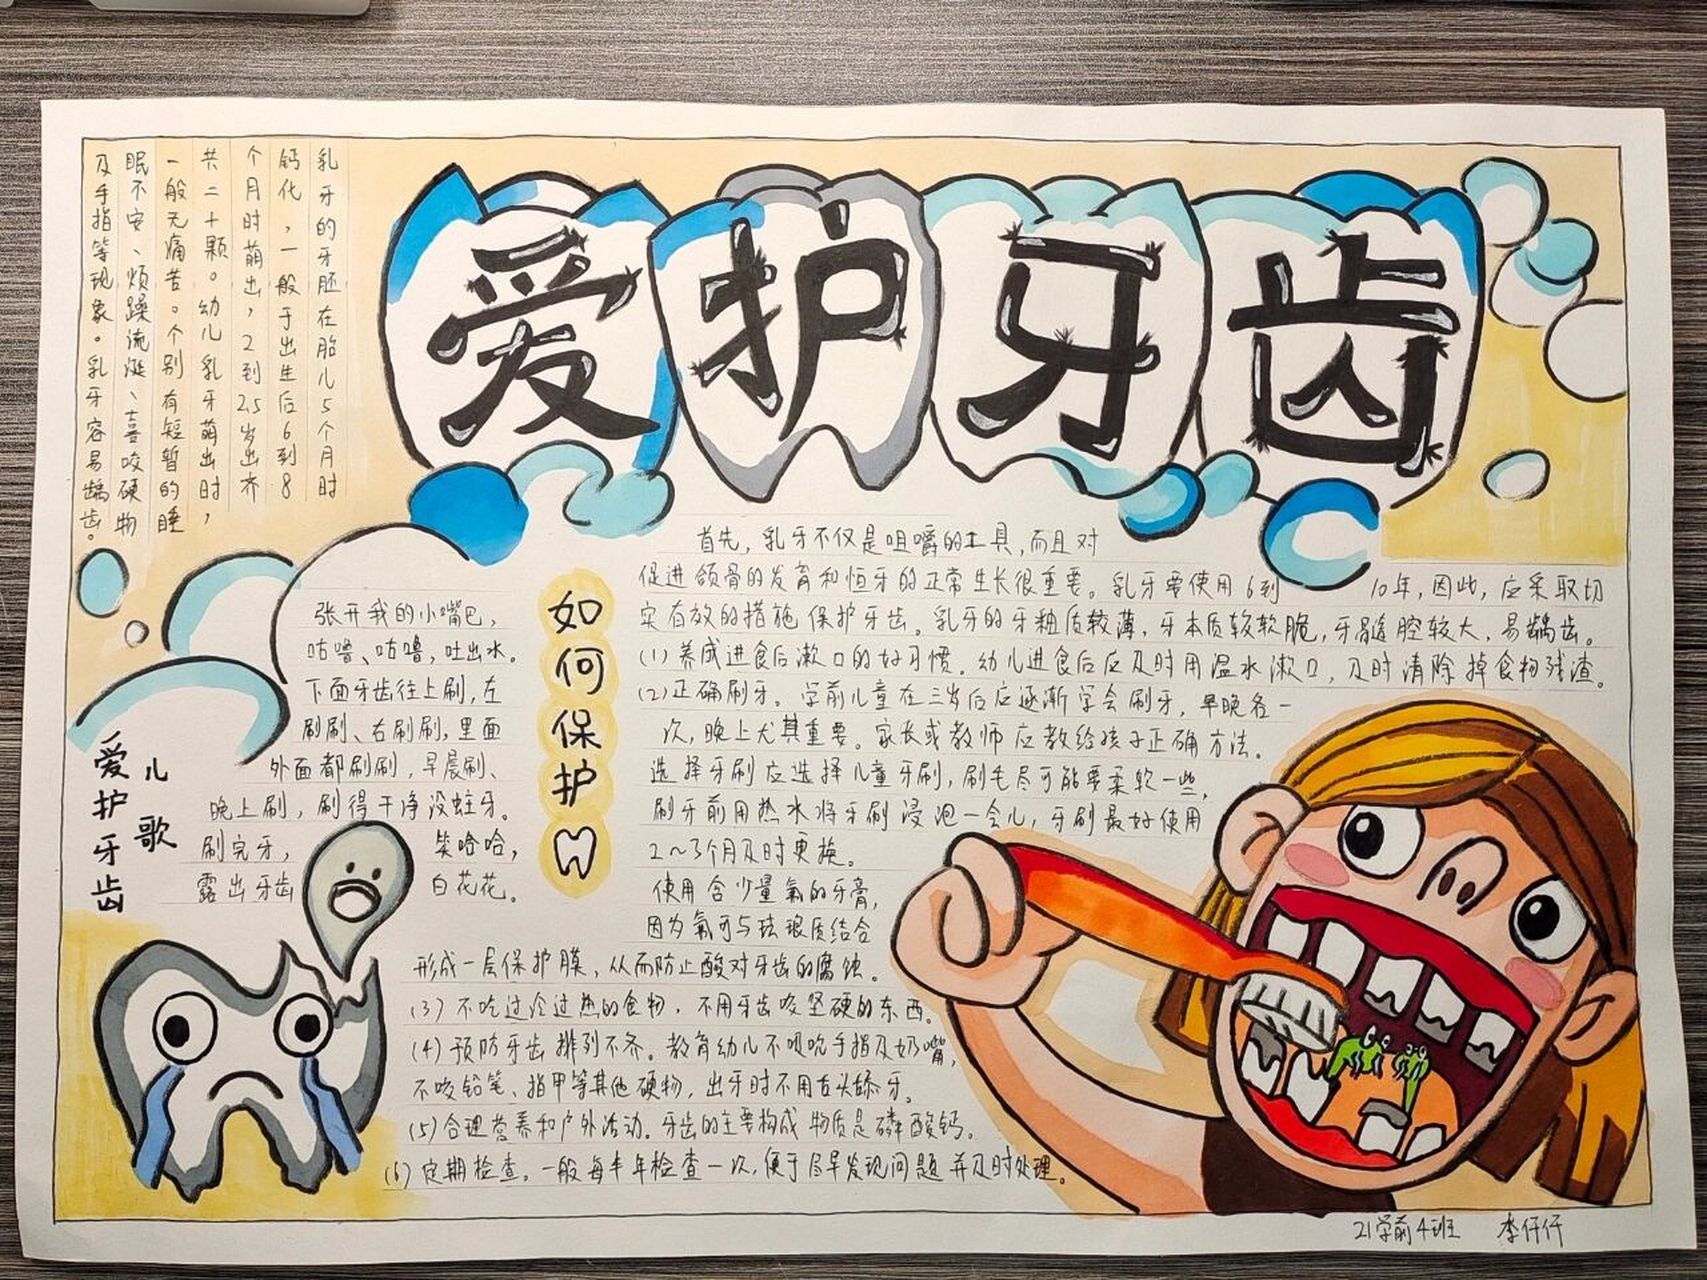 爱护牙齿
乳牙的牙胚在胎儿5个月时
钙化，一般于出生后6到8
个月时萌出，2到2.5岁出齐
共二十颗。幼儿乳牙萌出时，
一般无痛苦。个别有短暂的睡
眠不安、烦躁流涎、喜咬硬物
及手指等现象。乳牙容易龋齿。
爱护牙齿
儿歌
张开我的小嘴巴，
咕噜、咕噜，吐出水。
下面牙齿往上刷，左
刷刷、右刷刷，里面
外面都刷刷，早晨刷、
晚上刷，刷得干净没蛀牙。
刷完牙，笑哈哈，
露出牙齿白花花。
如何保护
首先，乳牙不仅是咀嚼的工具，而且对
促进颌骨的发育和恒牙的正常生长很重要。乳牙要使用6到10年，因此，应采取切
实有效的措施保护牙齿。乳牙的牙釉质较薄，牙本质较软脆，牙髓腔较大，易龋齿。
(1)养成进食后漱口的好习惯。幼儿进食后应及时用温水漱口，及时清除掉食物残渣。
(2)正确刷牙。学前儿童在三岁后应逐渐学会刷牙，早晚各一
次，晚上尤其重要。家长或教师应教给孩子正确方法。
选择牙刷应选择儿童牙刷，刷毛尽可能要柔软一些，
刷牙前用热水将牙刷浸泡一会儿，牙刷最好使用
2～3个月及时更换。
使用含少量氟的牙膏，
因为氟可与珐琅质结合
形成一层保护膜，从而防止酸对牙齿的腐蚀。
(3)不吃过冷过热的食物，不用牙齿咬坚硬的东西。
(4)预防牙齿排列不齐。教育幼儿不吸吮手指及奶嘴，
不咬铅笔、指甲等其他硬物，出牙时不用舌头舔牙。
(5)合理营养和户外活动。牙齿的主要构成物质是磷酸钙。
(6)定期检查。一般每半年检查一次，便于尽早发现问题并及时处理。
21学前4班 李仟仟